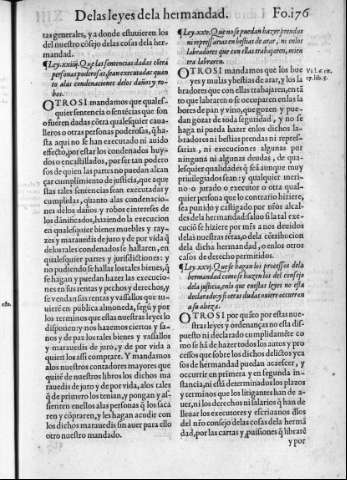 De las leyes de la hermandad. Fo.176
tas generales, y a donde estuuieren los
del nuestro cõsejo de las cosas de la her
mandad.
¶Ley.xxiij. Que las sentencias dadas cõtra
personas poderosas, sean executadas quan
to a las condenaciones de los daños y ro
bos.
OTROSI mandamos que quales
quier sentencia o sentẽcias que son
o fueren dadas cõtra qualesquier caua
lleros o otras personas poderosas, q̃ ha
sta aqui no se han executado ni auido
effecto, por estar los condenados huy
dos o encastillados, por ser tan podero
sos de quien las partes no puedan alcan
çar cumplimiento de justicia, que aque
stas tales sentencias sean executadas y
cumplidas, quanto a las condenacio
nes de los daños y robos e interesses de
los dãnificados, haziendo la execucion
en qualesquier bienes muebles y ray-
zes y marauedis de juro y de por vida q̃
de los tales condenados se hallaren, en
qualesquier partes y jurisdictiones: y
no pudiendo se hallar los tales bienes, q̃
se hagan y puedan hazer las execucio-
nes en sus rentas y pechos y derechos, y
se vendan sus rentas y vassallos que tu-
uierẽ en publica almoneda, segũ y por
los terminos que estas nuestras leyes lo
disponen: y nos hazemos ciertos y sa-
nos y de paz los tales bienes y vassallos
y marauedis de juro, y de por vida a
quien los assi comprare. Y mandamos
a los nuestros contadores mayores que
quitẽ de nuestros libros los dichos ma
rauedis de juro y de por vida, a los tales
q̃ de primero los tenian, y pongan y as-
sienten en ellos a las personas q̃ los saca
ren y cõpraren, y les hagan acudir con
los dichos marauedis sin auer para ello
otro nuestro mandado.
¶Ley.xxiv. Que no se puedan hazer prendas
ni represarias en bestias de arar, ni en los
labradores que con ellas trabajaren, mien
tra labraren.
OTROSI mandamos que los bue
yes y mulas y bestias de arar, y los la
bradores que con ellas trabajaren, en tã
to que labraren o se occuparen en las la
bores de pan y vino, que gozen y pue-
dan gozar de toda seguridad, y no se
haga ni pueda hazer en los dichos la-
bradores ni bestias prendas ni represa-
rias, ni execuciones algunas por
ninguna ni algunas deudas, de qua-
lesquier qualidades q̃ sea aunque muy
priuilegiados sean: y qualquier meri-
no o jurado o executor o otra qual-
quier persona que lo contrario hiziere,
sea punido y castigado por nros alcal-
des de la hermandad: saluo si la tal exe-
cuciõ se hiziere por mis a nos deuidos
de las nuestras rẽtas, o de la cõtribucion
dela dicha hermandad, o en los otros
casos de derecho permitidos.
¶Ley.xxv. Que se hagan los processos de la
hermandad como se hazen los del consejo
de la justicia, en lo que en estas leyes no esta
declarado: y si otras dudas uuiere occurren
a su alteza.
OTROSI por quãto por estas nue-
stras leyes y ordenanças no esta dis-
puesto ni declarado cumplidamẽte co
mo se hã de hazer todos los autos y pro
cessos que sobre los dichos delictos y ca
sos de hermandad puedan acaescer, y
occurrir en primera y en segunda in-
stancia, ni está determinados los plazos
y terminos que los litigantes han de a-
uer, ni los derechos ni salarios q̃ han de
lleuar los executores y escriuanos dlos
del nr̃o consejo de las cosas de la hermã
dad, por las cartas y, passiones q̃ librarẽ
y por